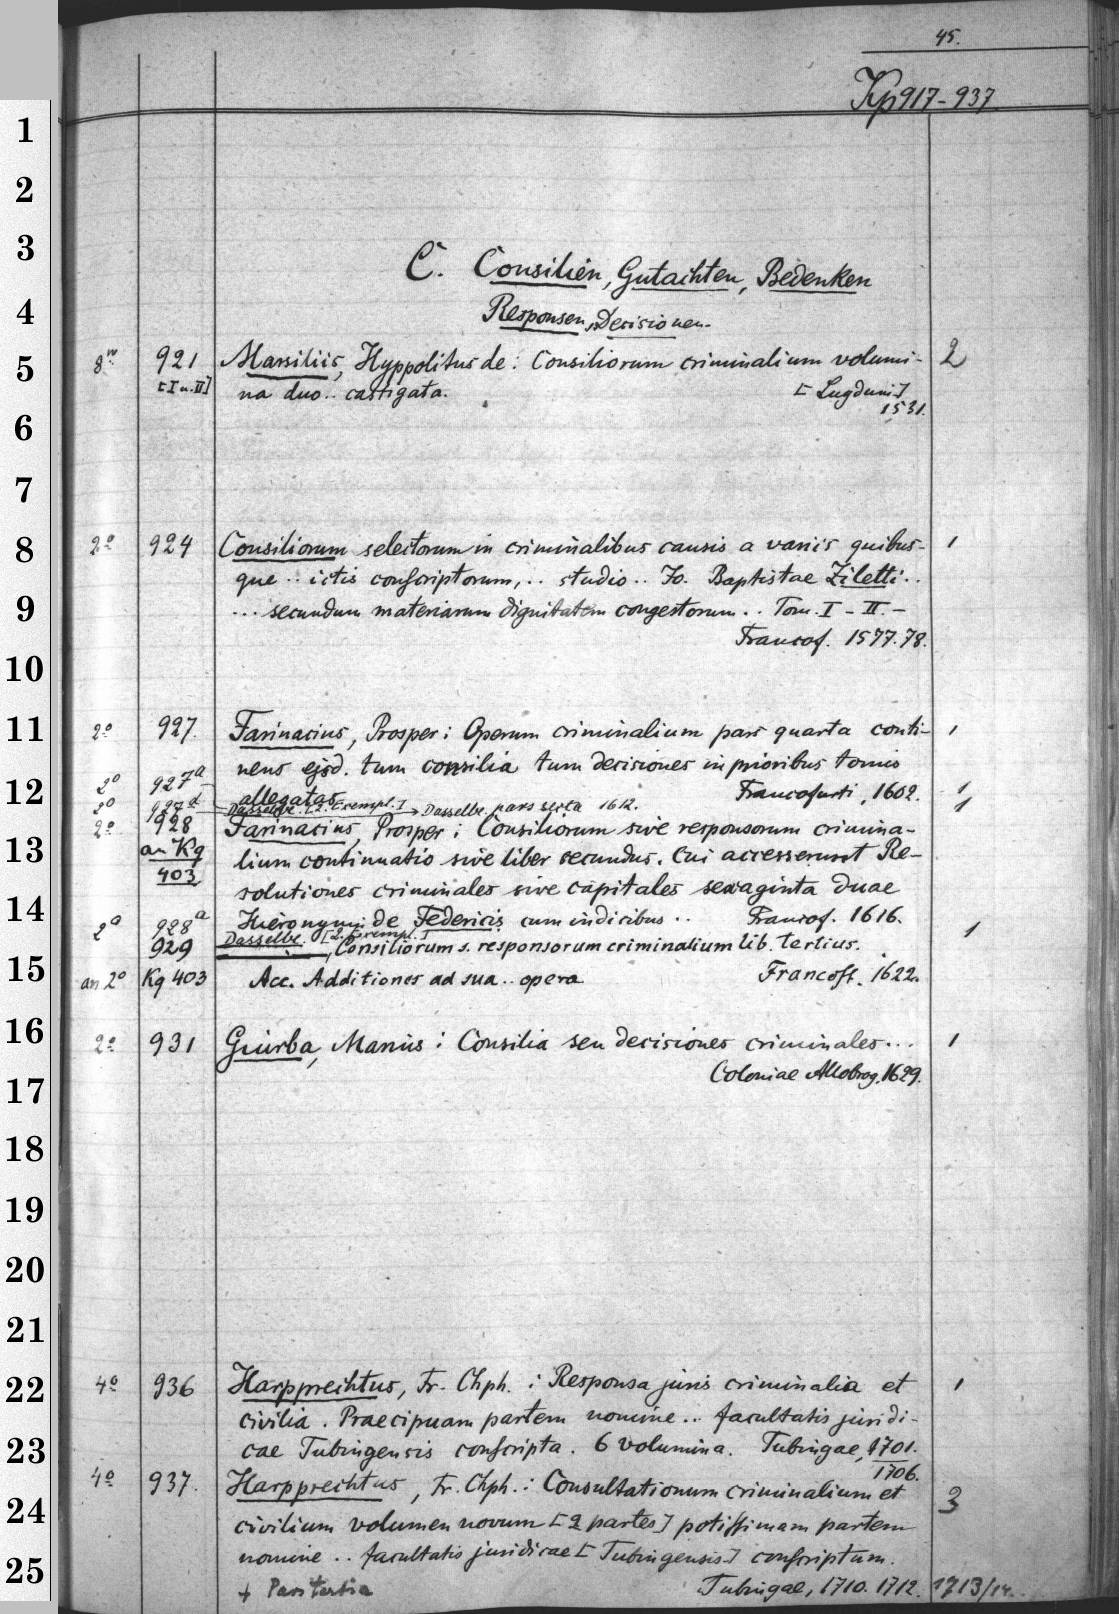 45.
Kp 917-937
C. Consilien, Gutachten, Bedenken
Responsen, Decisionen.
8° 921 Marsiliis, Hyppolitus de: Consiliorum criminalium volumi- 2
[I u. II] na duo.. castigata. [Lugduni]
1531.
2° 924 Consiliorum selectorum in criminalibus causis a variis quibus- 1
que .. ictis conscriptorum, .. studio .. Jo. Baptistae Ziletti..
... secundum materiarum dignitatem congestorum .. Tom. I - II. -
Francof. 1577.78.
2° 927. Farinacius, Prosper: Operum criminalium pars quarta conti- 1
nens ejsd. tum consilia tum decisiones in prioribus tomis
2° 927a allegatas Francofurti, 1602. 1
2° 927d Dasselbe. [2. Exempl.] → Dasselbe. pars sexta 1612. 1
2° 928 Farinacius, Prosper: Consiliorum sive responsorum crimina-
an Kg lium continuatio sive liber secundus. Cui accesserunt Re-
403 solutiones criminales sive capitales sexaginta duae
2° 928a Hieronymi de Federicis cum indicibus .. Francof. 1616.
Dasselbe. [2. Exempl.] 1
929 , Consiliorum s. responsorum criminalium lib. tertius.
an 2° Kg 403 Acc. Additiones ad sua .. opera Francoft. 1622.
2° 931 Giurba, Marius: Consilia seu decisiones criminales... 1
Coloniae Allobrog. 1629.
4° 936 Harpprechtus, Fr. Chph.: Responsa juris criminalia et 1
civilia. Praecipuam partem nomine .. facultatis juridi-
cae Tubingensis conscripta. 6 volumina. Tubingae, 1701.
1706.
4° 937. Harpprechtus, Fr. Chph.: Consultationum criminalium et 3
civilium volumen novum [2 partes] potissimam partem
nomine .. facultatis juridicae [Tubingensis] conscriptum.
+ Pars tertia Tubingae, 1710. 1712. 1713/14.
1
2
3
4
5
6
7
8
9
10
11
12
13
14
15
16
17
18
19
20
21
22
23
24
25